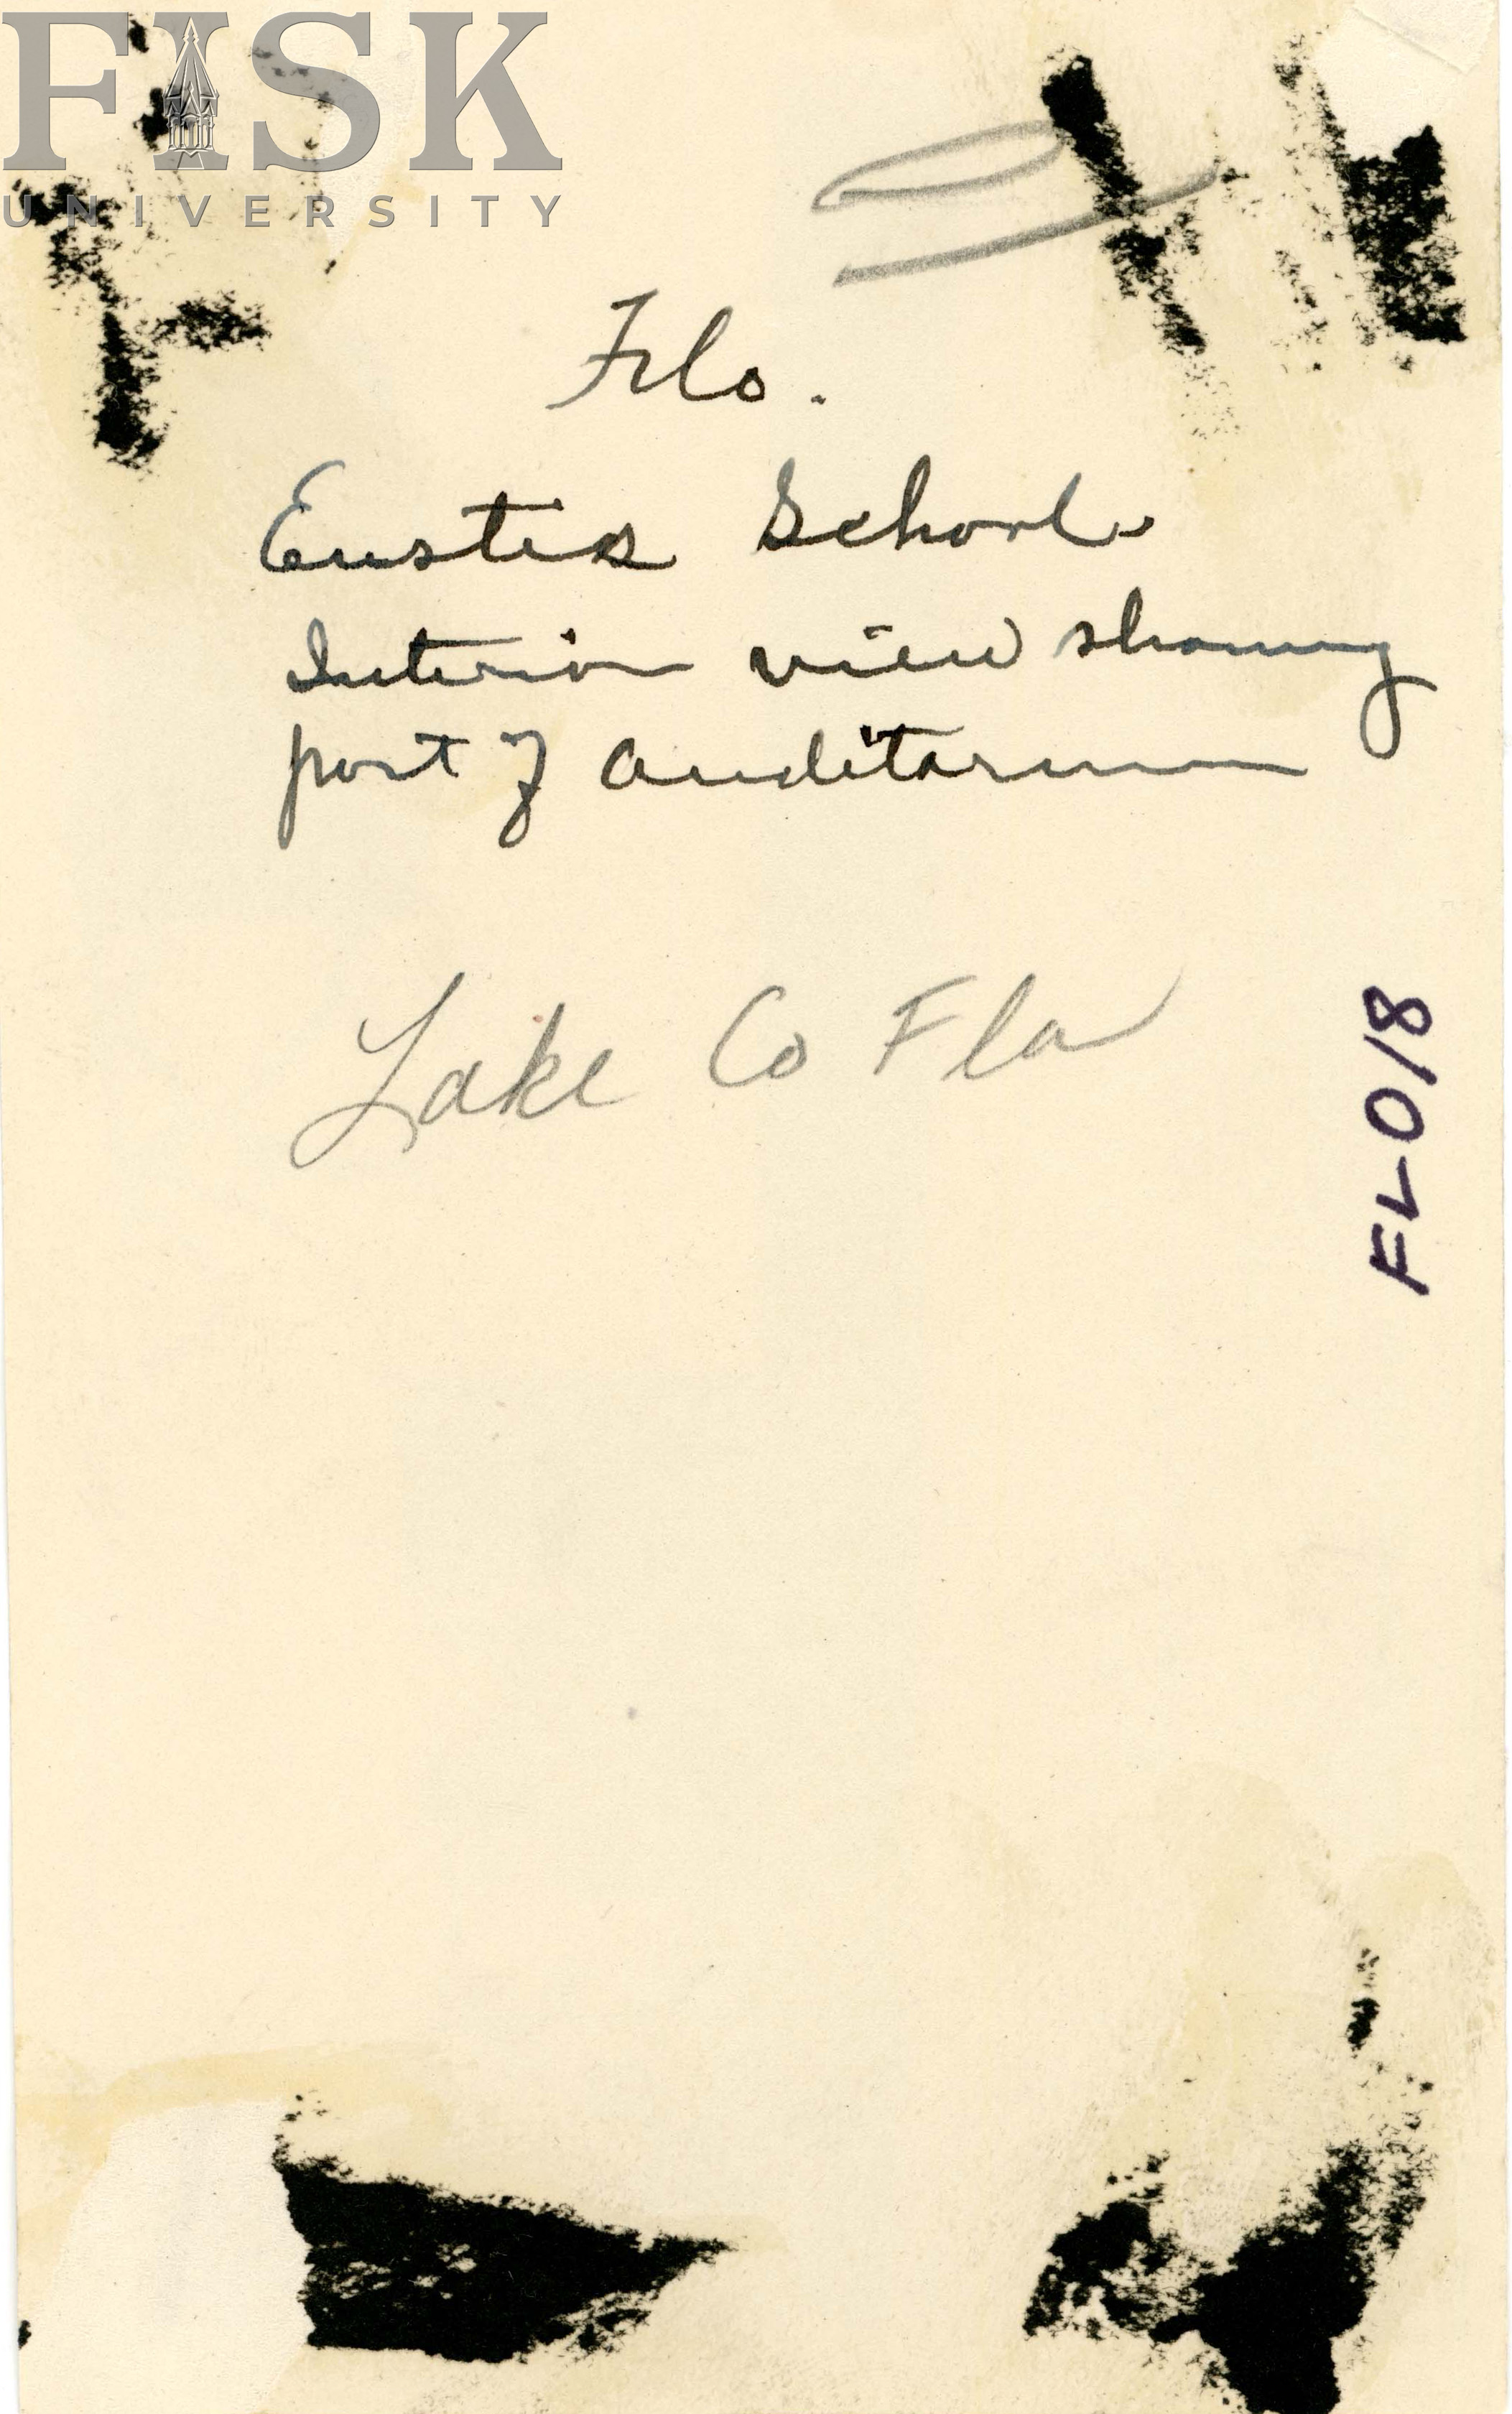 FISK
UNIVERSITY
Fla.
Eustis School
Interior view showing
part of auditorium
Lake Co Fla
FL-018